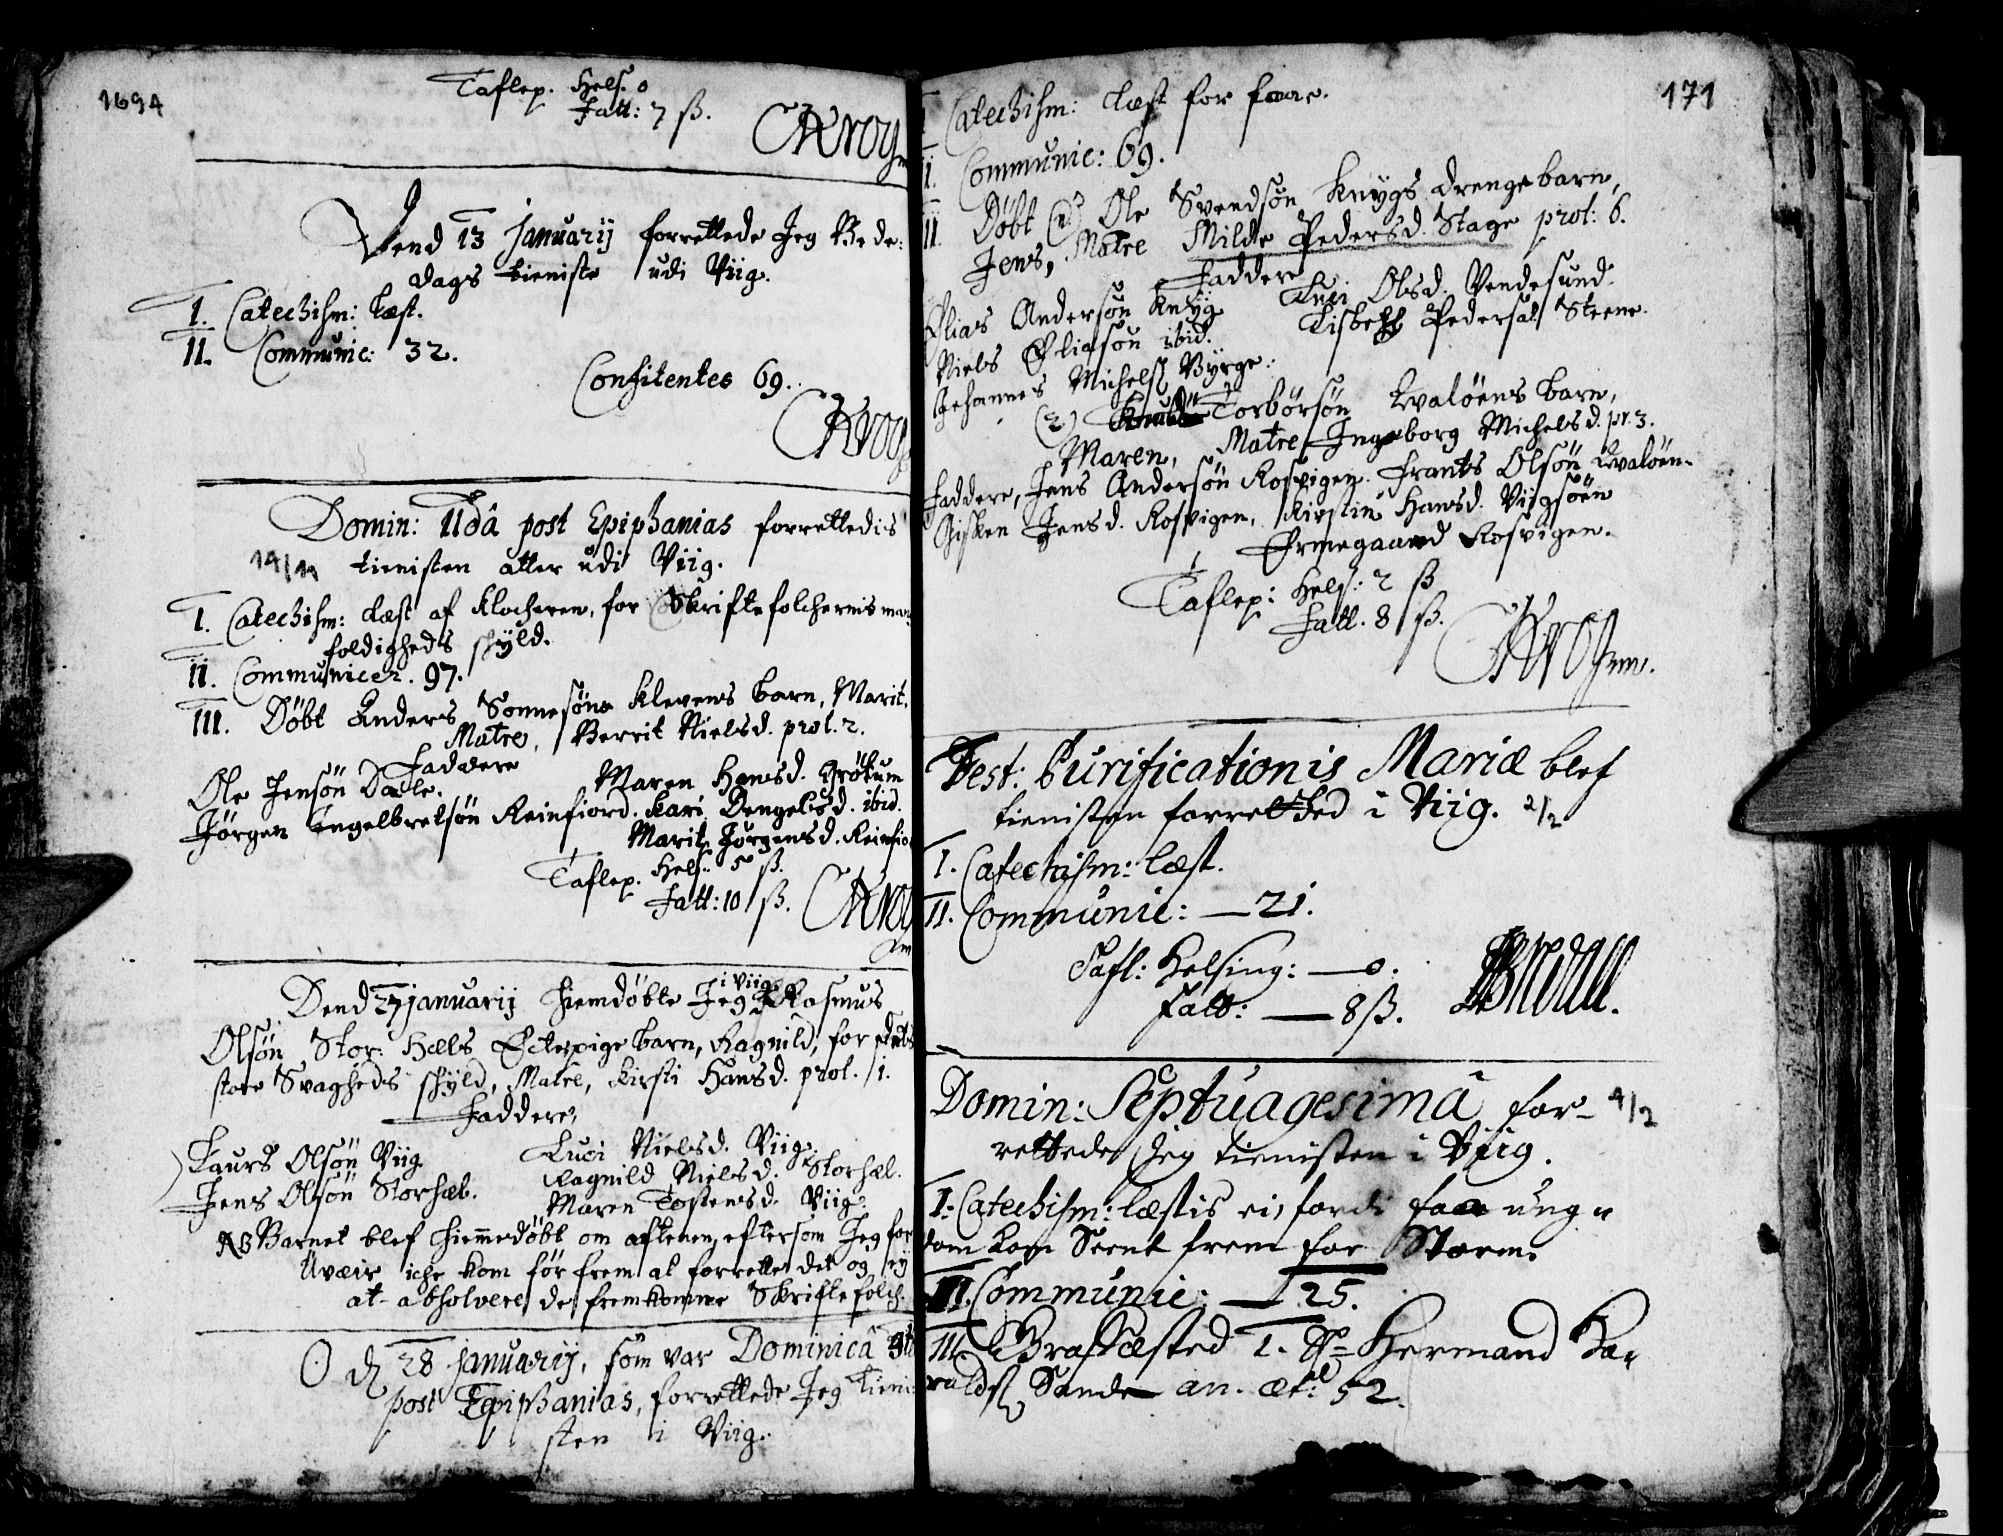 1694
Taflep. Hels. 0
Fatt: 7 ß.
CKrog
Dend 13 Januarij forrettede Jeg Bede-
dags tieniste udi Viig.
I. Catechism: Læst.
II. Communic: 32.
Confitentes 69.
CKrog
Domin: IIdâ post Epiphanias forrettedis
14/1 tienisten atter udi Viig.
I. Catechism: Læst af Klocheren, for Skriftefolchernis man-
foldigheds skyld.
II. Communicer. 97.
III. Döbt Anders Sonnesöns Klevens barn, Marit,
Matre, Berrit Nielsd. prol. 2.
Faddere
Ole Jensön Dale. Maren Hansd. Gröttum
Jörgen Ingelbretsön Reinfiord. Kari Engelsd. ibid.
Marit Jörgensd. Reinfio
Taflep. Hels: 5 ß.
Fatt: 10 ß. CKrog
Dend 27 Januarij hiemdöbte Jeg i Viig Rasmus
Olsön Stor: Hæls Ectepige barn, Ragnild, for dets
store Svagheds skyld, Matre, Kirsti Hansd. prol. 1.
Faddere,
Laurs Olsön Viig Luci Nielsd. Viig.
Jens Olsön Storhæl. Ragnild Nielsd. Storhæl.
Maren Tostensd. Viig.
NB Barnet blef hiemmedöbt om aftenen, eftersom Jeg for
Uvæir iche kom för frem at forrette det og ey
at absolvere de fremkomne Skriftefolch.
D 28 Januarij, som var Dominicâ 3tiâ
post Epiphanias, forrettede Jeg tieni-
sten i Viig.
171
I. Catechism: Læst for faae.
II. Communic: 69.
III. Döbt (1) Ole Svendsön Knygs drengebarn,
Jens, Matre Milde Pedersd. Stage prol: 6.
Faddere
Elias Andersön Knyg Luci Olsd. Vendesund.
Niels Eliasön ibid. Lisbeth Pedersd. Steene.
Johannes Michelsß Byrge.
(2) Torbörsön Qvalöens barn,
Maren, Matre Ingeborg Michelsd. pr. 3.
Faddere, Jens Andersön Rosvigen. Frants Olsön Qvalöen.
Gisken Jensd. Rosvigen, Kirstin Hansd. Viigsöen
Ermegaard Rosvigen.
Taflep: Hels: 2 ß
Fatt. 8 ß.
CKrog
Fest: Purificationis Mariæ blef
tienisten forretted i Viig. 2/2
I. Catechism: læst.
II. Communic: — 21.
Tafl: Helsing: — 0.
Fatt: — 8 ß.
Domin: Septuagesimâ for- 4/2
rettede Jeg tienisten i Viig.
I. Catechism: læstis ei, fordi faae unge
som kom Seent frem for Storm.
II. Communic: — 25.
III. Grafsæsted 1. Sr Hermand Ha-
raldsß Sande an. æt: 52.